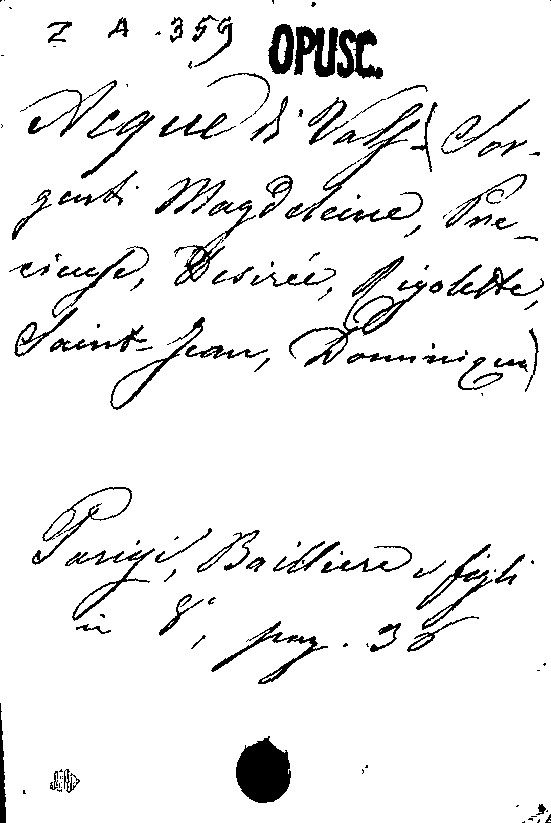 Z A .359 OPUSC.
Acque di Vals (Sor-
genti Magdeleine, Pré-
cieuse, Desirée, Rigolette,
Saint-Jean, Dominique)
Parigi, Bailliere e figli
in 8°, pag. 36